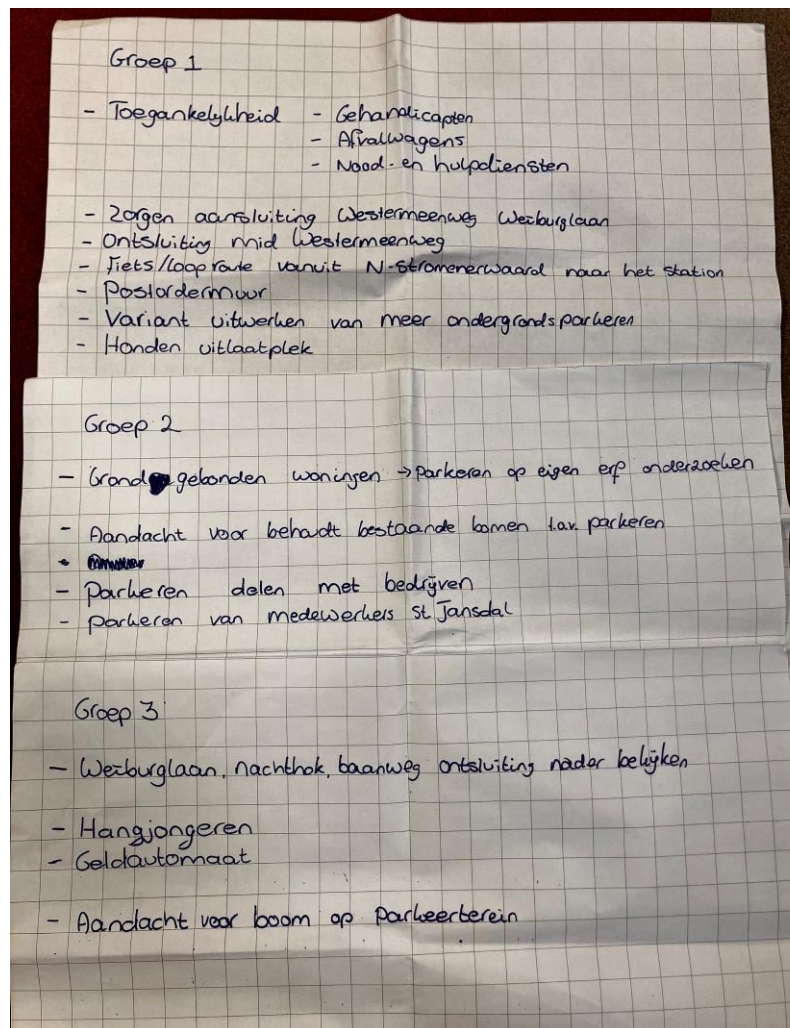 Groep 1
- Toegankelijkheid - Gehandicapten
- Afvalwagens
- Nood- en hulpdiensten
- Zorgen aansluiting Westermeenweg Weiburglaan
- Ontsluiting mid Westermeenweg
- Fiets/loop route vanuit N-Stromenerwaard naar het station
- Postordermuur
- Variant uitwerken van meer ondergronds parkeren
- Honden uitlaatplek
Groep 2
- Grond gebonden woningen → parkeren op eigen erf onderzoeken
- Aandacht voor behoudt bestaande bomen t.a.v. parkeren
- Parkeren delen met bedrijven
- parkeren van medewerkers St Jansdal
Groep 3
- Weiburglaan, nachthok, baanweg ontsluiting nader bekijken
- Hangjongeren
- Geldautomaat
- Aandacht voor boom op parkeerterein